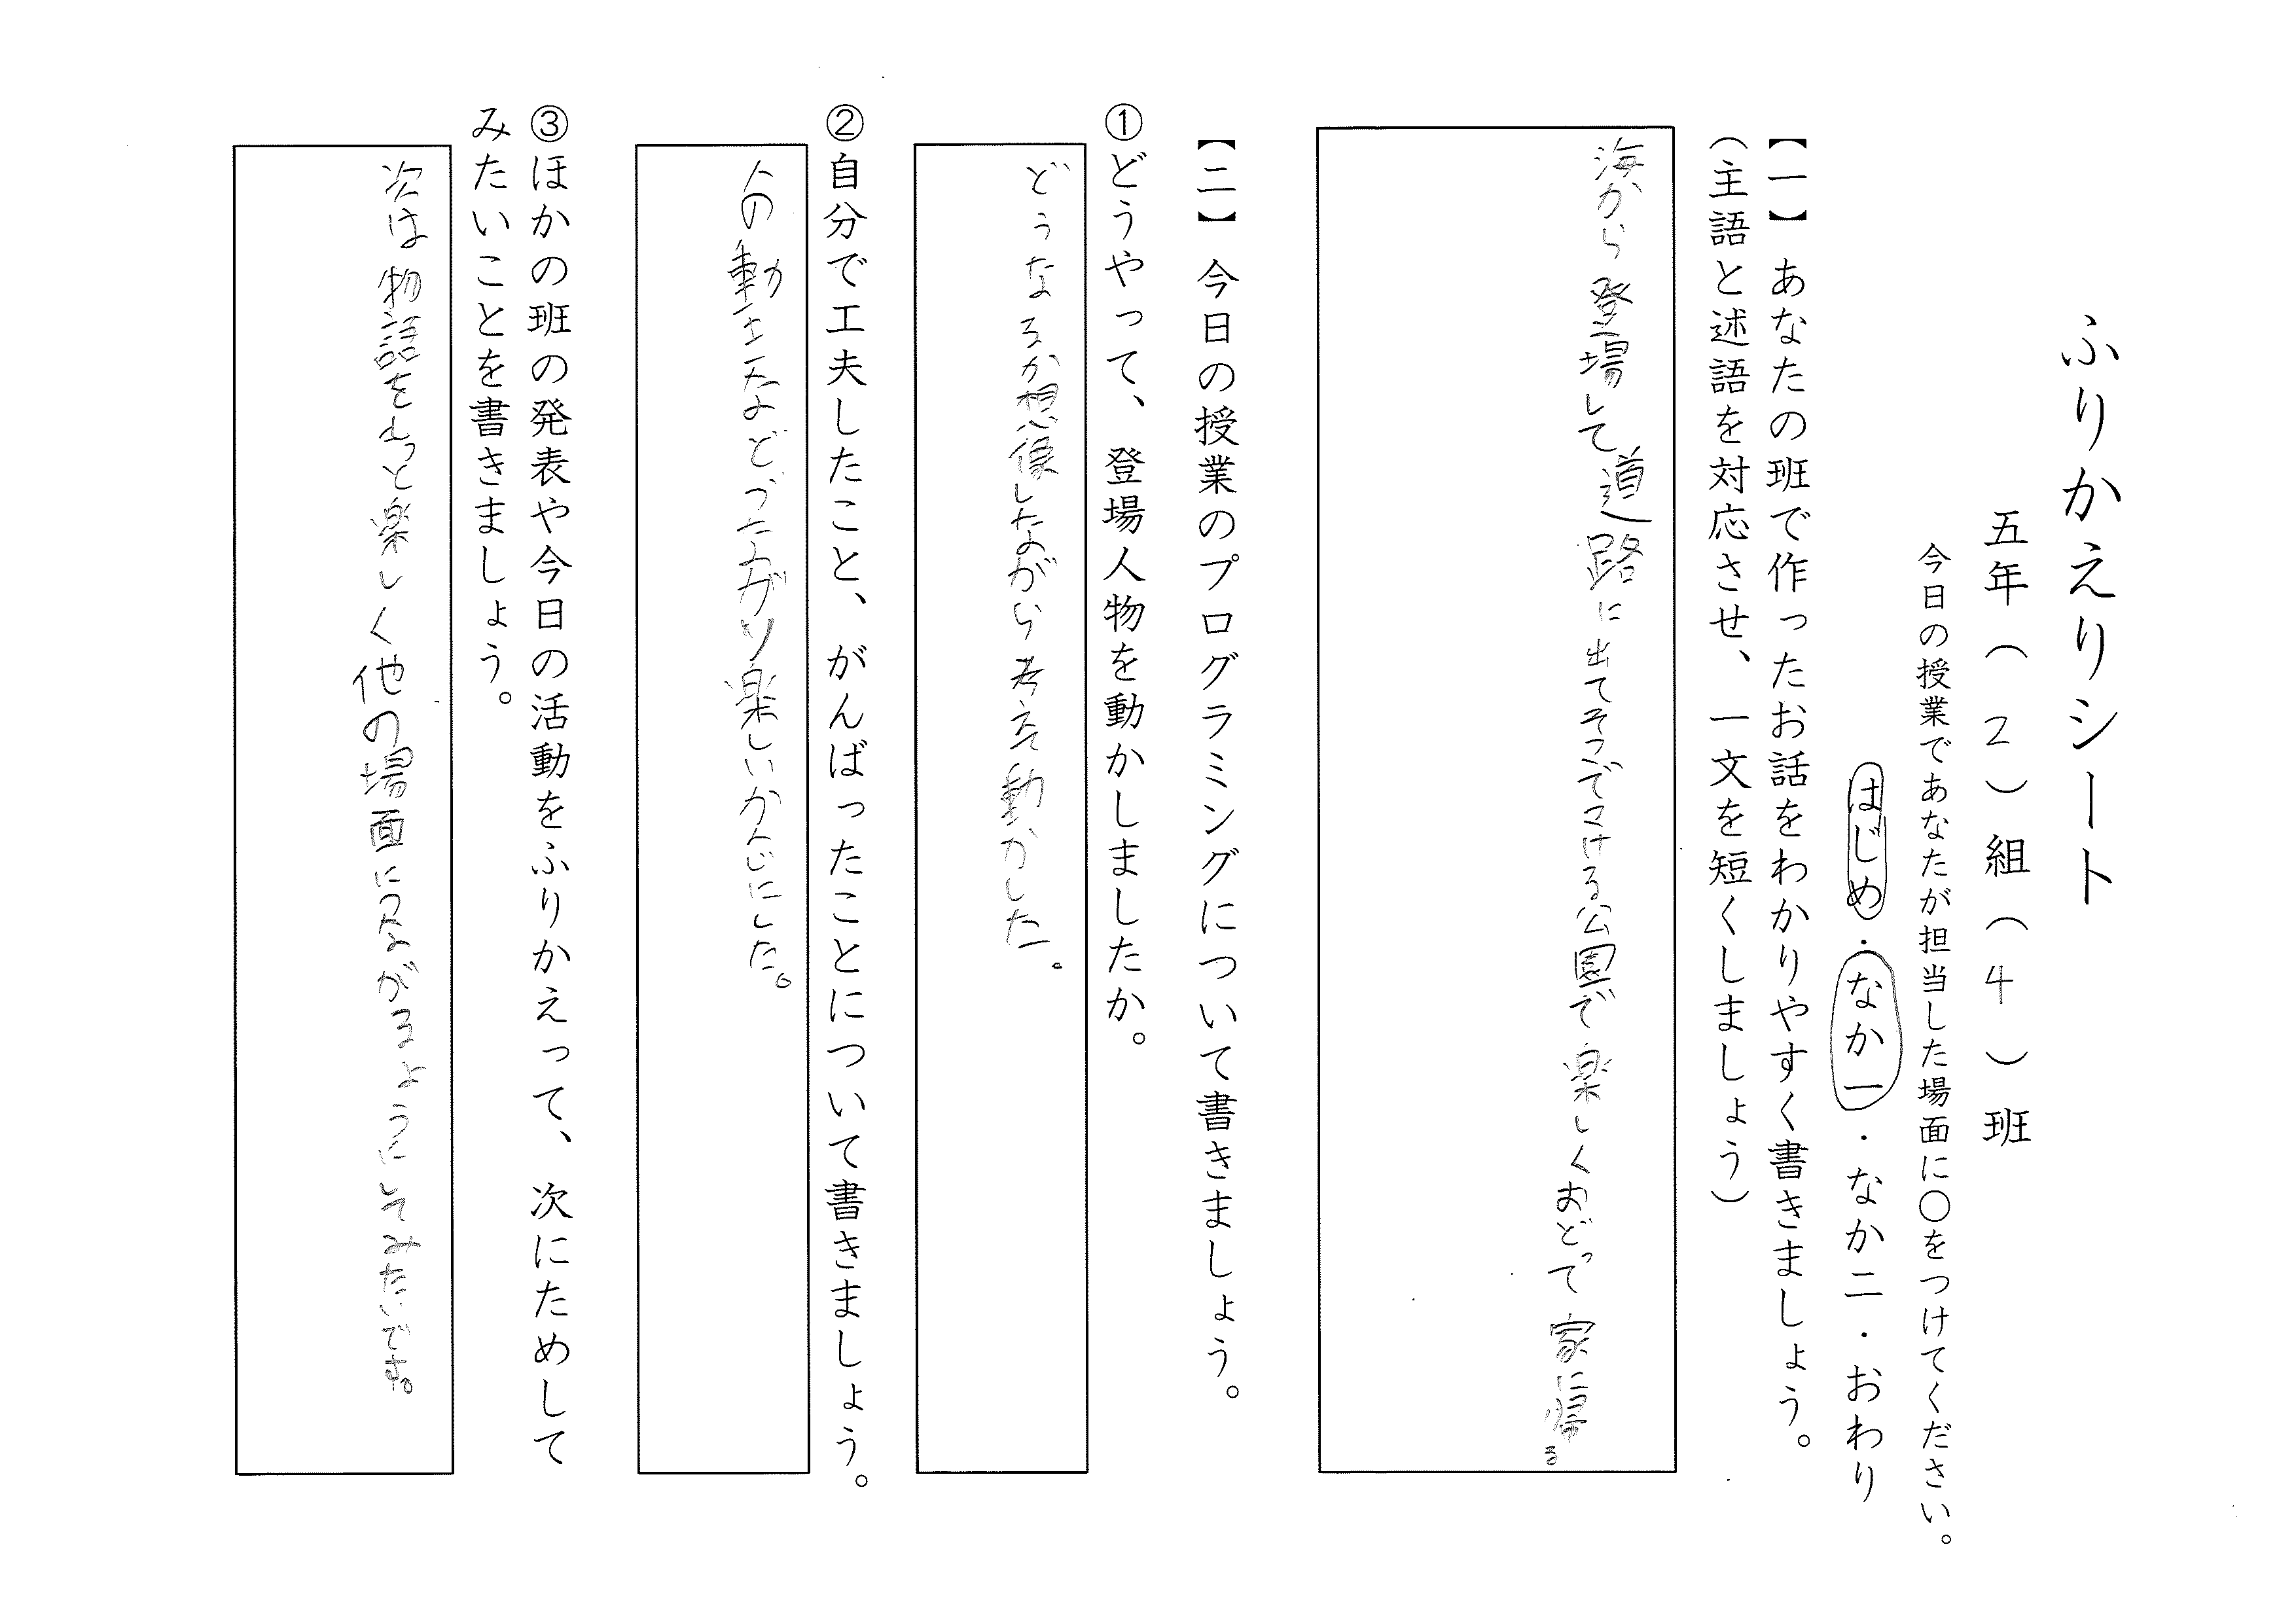 ふりかえりシート
五年（２）組（４）班
今日の授業であなたが担当した場面に〇をつけてください。
はじめ・なか一・なか二・おわり
【一】あなたの班で作ったお話をわかりやすく書きましょう。
（主語と述語を対応させ、一文を短くしましょう）
海から登場して道路に出てそこでこける公園で楽しくおどって家に帰る
【二】今日の授業のプログラミングについて書きましょう。
①どうやって、登場人物を動かしましたか。
どうなるか想像しながら考えて動かした。
②自分で工夫したこと、がんばったことについて書きましょう。
人の動きなど 楽しいかんじにした。
③ほかの班の発表や今日の活動をふりかえって、次にためして
みたいことを書きましょう。
次は物語をもっと楽しく他の場面につながるようにしてみたいです。